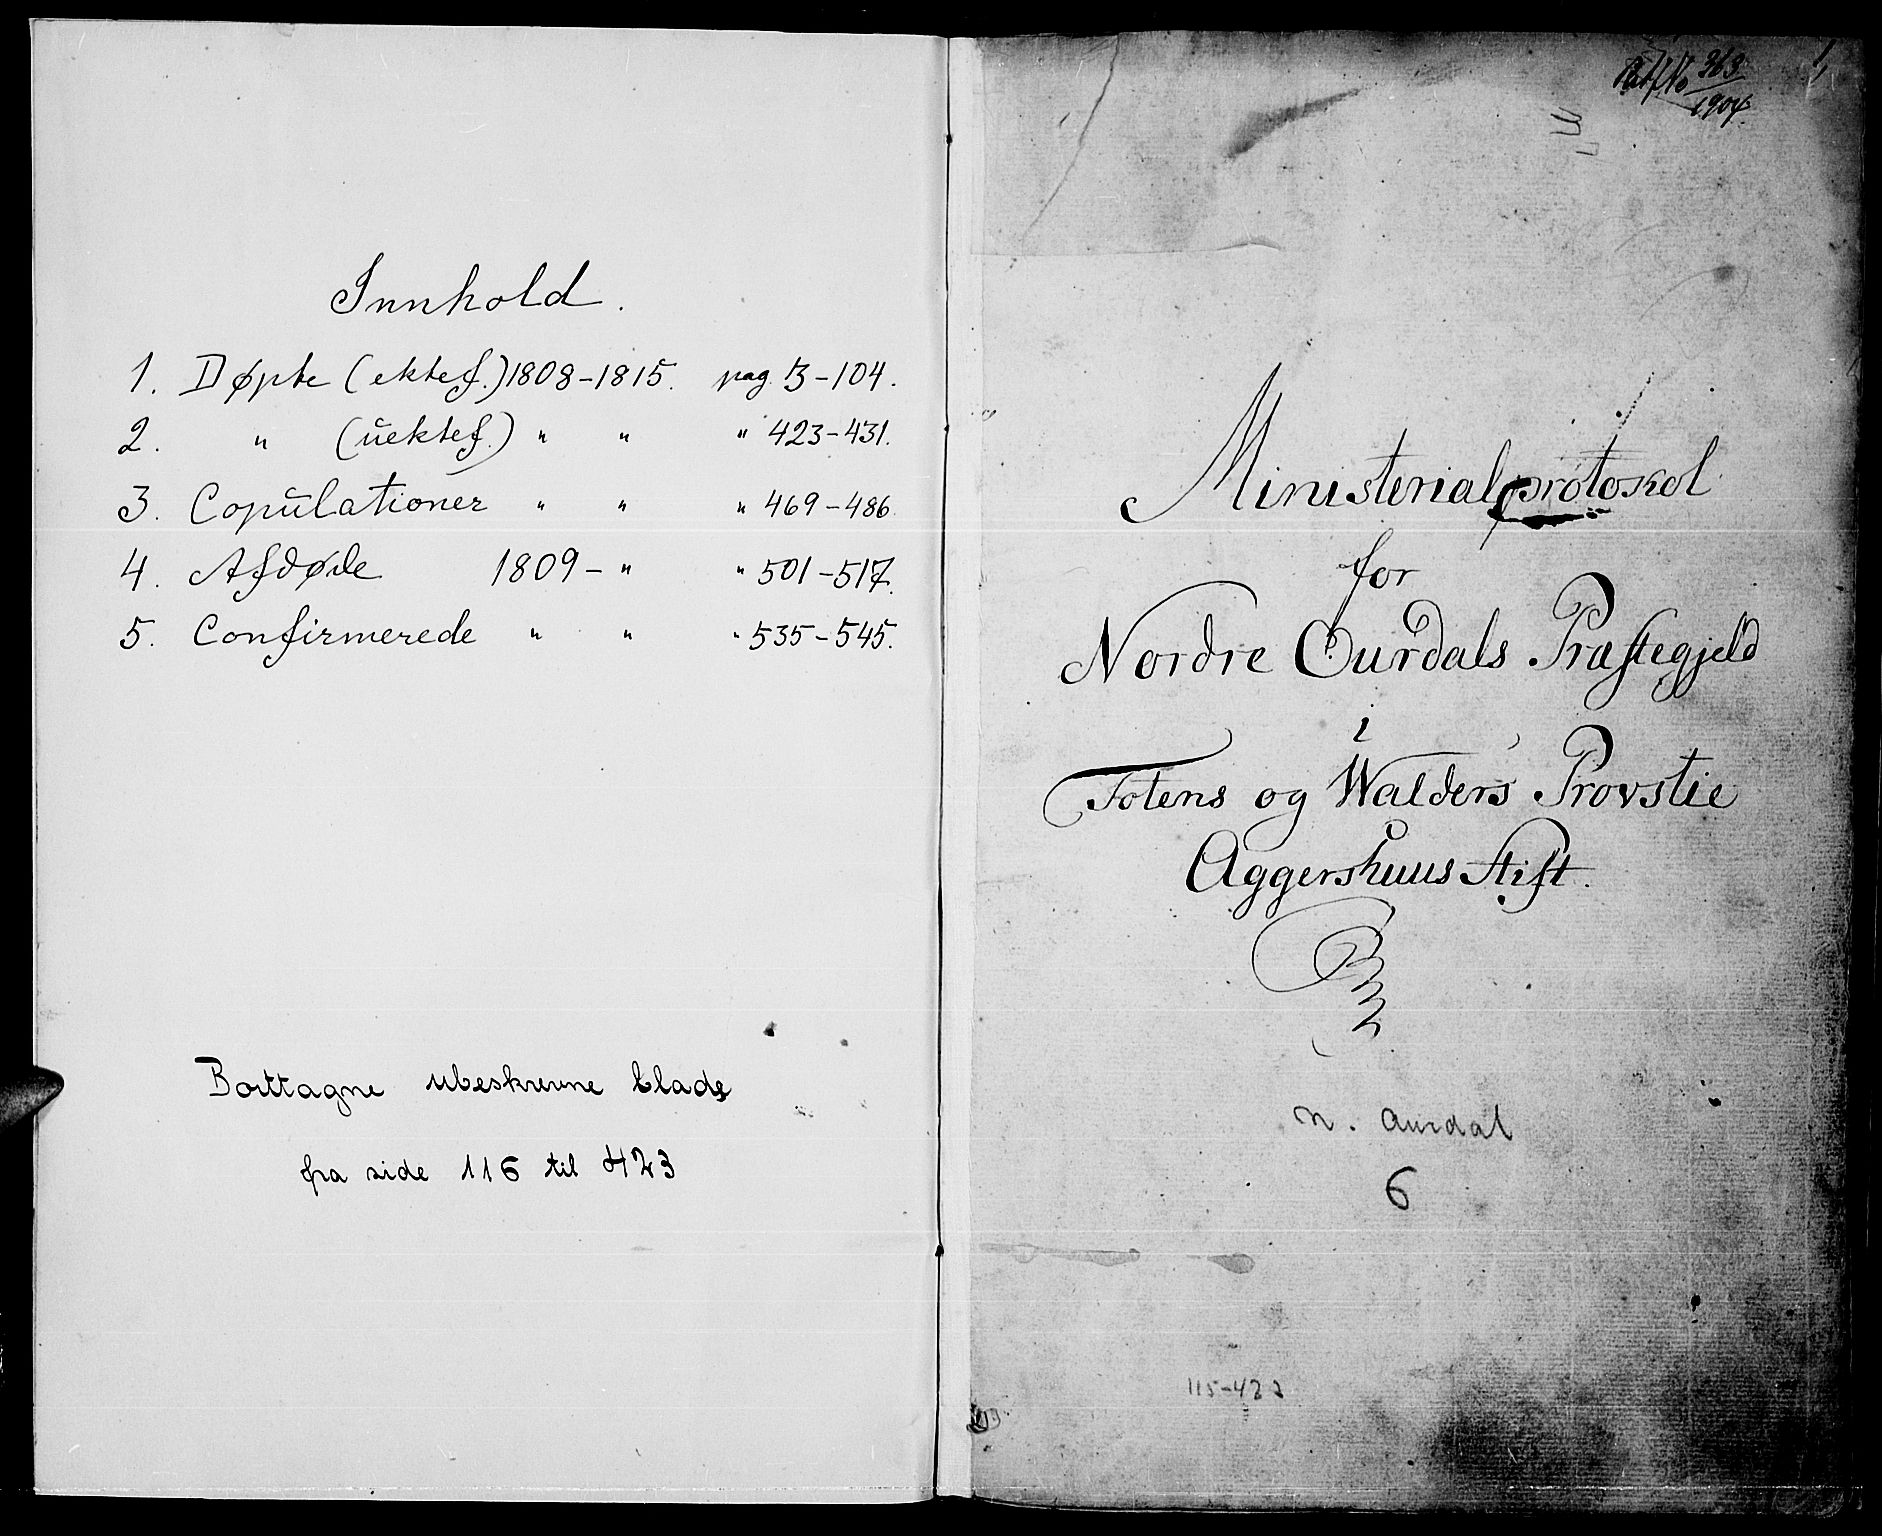 Innhold.
1. Døpte (ektef.) 1808-1815. pag. 3-104.
2. " (uektef.) " " " 423-431.
3. Copulationer " " " 469-486.
4. Afdøde 1809- " " 501-517.
5. Confirmerede " " " 535-545.
Borttagne ubeskrevne blade
fra side 116 til 423
363
1904.
1,
Ministerialprotokol
for
Nordre Ourdals Præstegjeld
i
Totens og Walders Provstie
Aggershuus Stift.
N. Aurdal
6